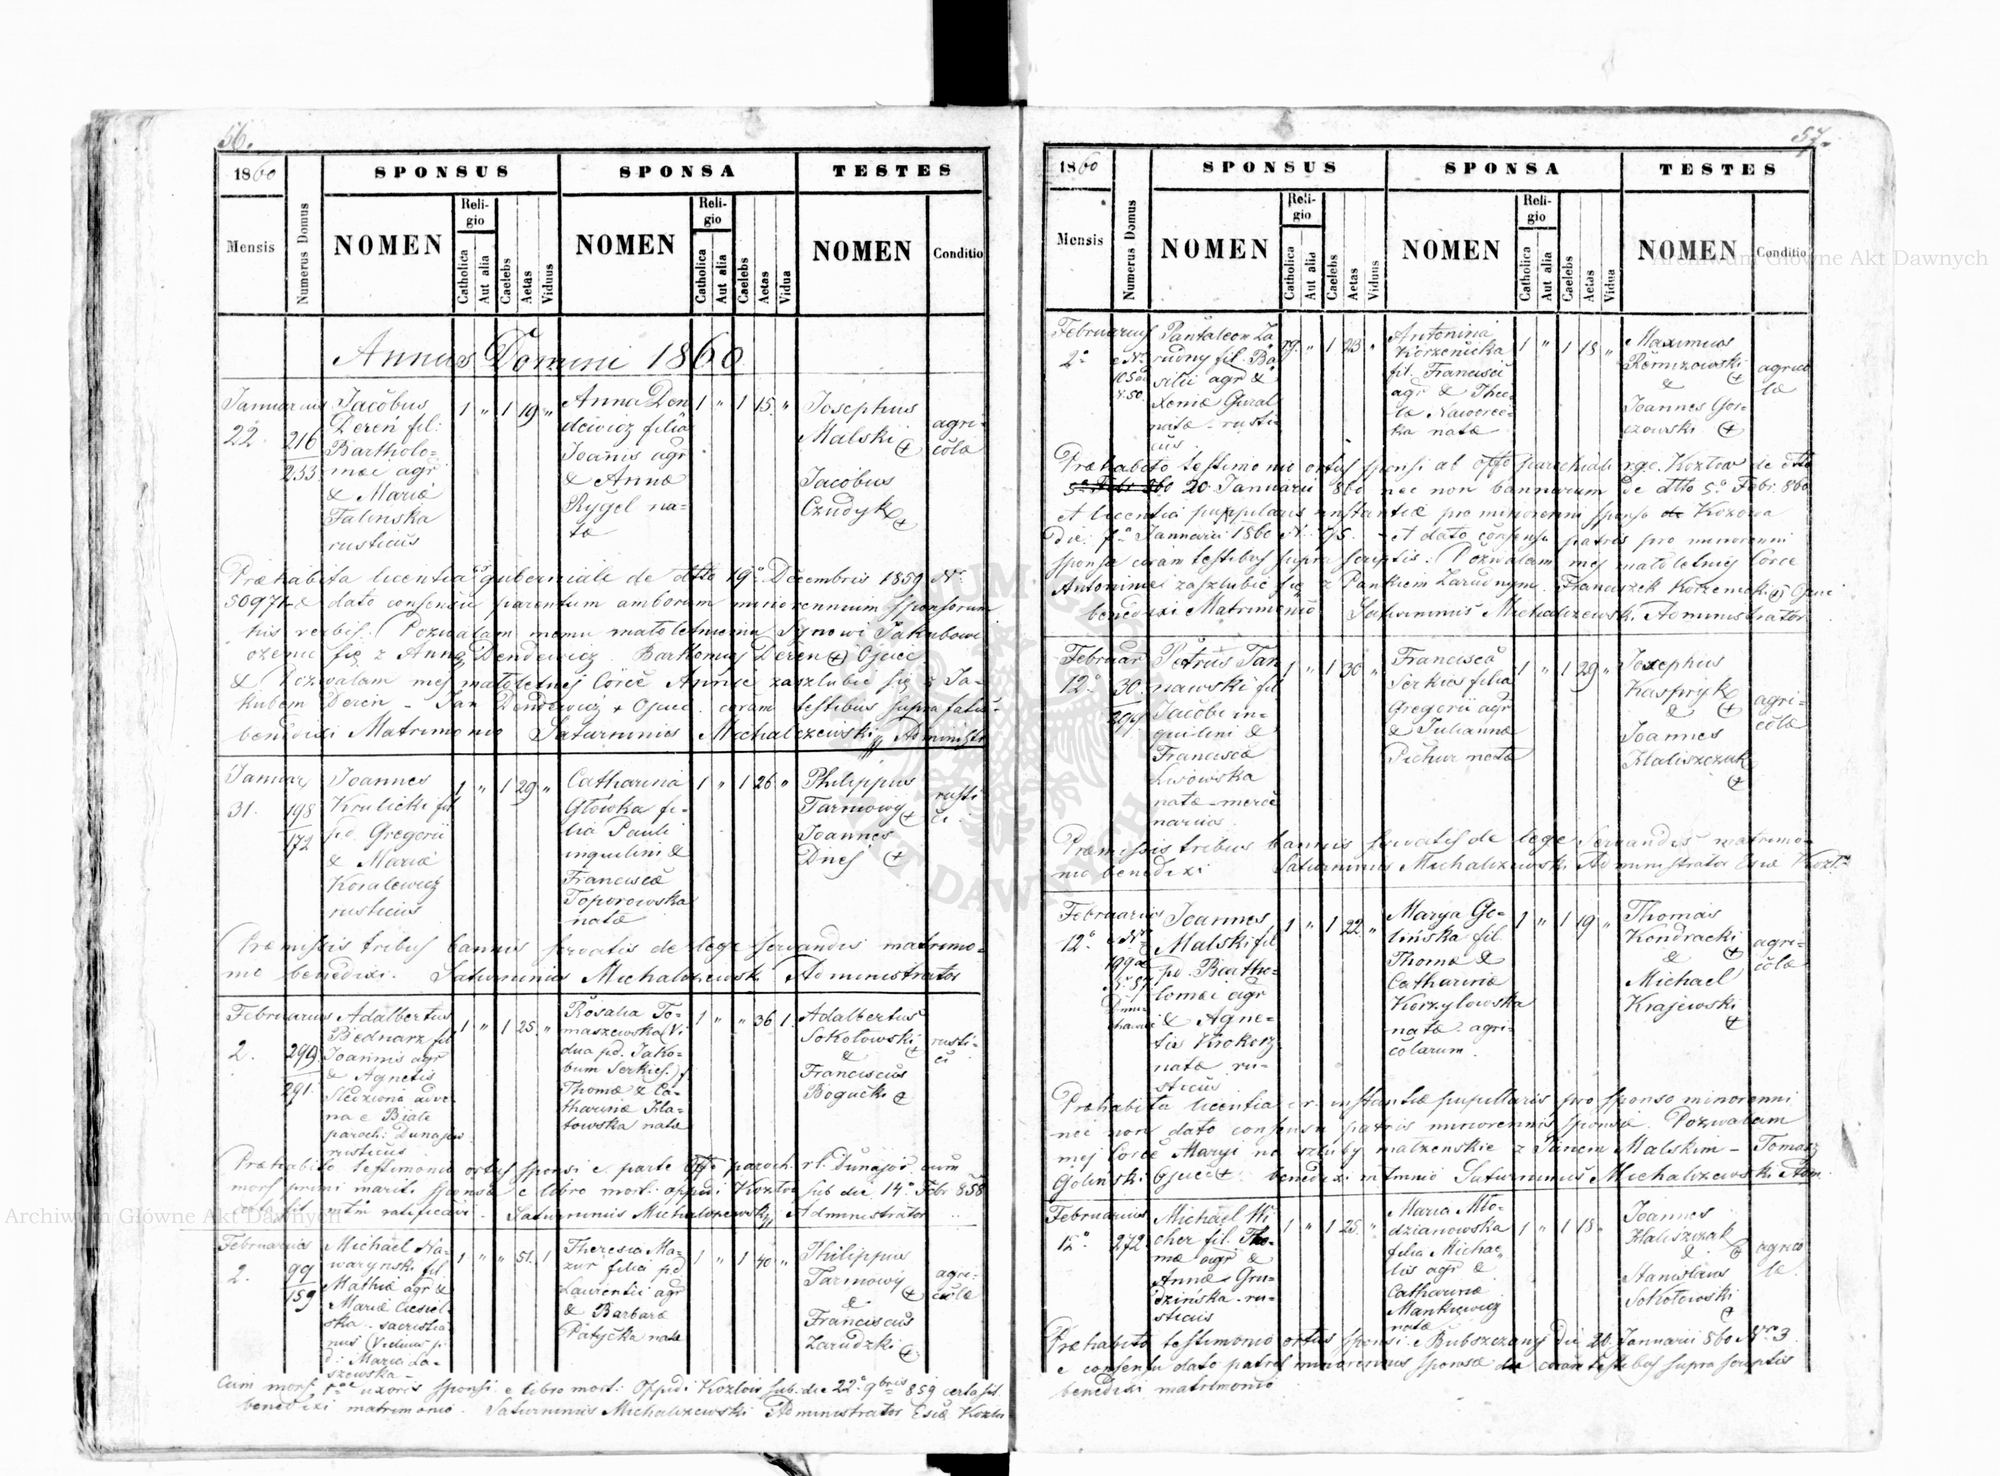 56.
1860
SPONSUS
SPONSA
TESTES
Mensis
Numerus Domus
NOMEN
Religio
Catholica
Aut alia
Caelebs
Aetas
Viduus
NOMEN
Religio
Catholica
Aut alia
Caelebs
Aetas
Vidua
NOMEN
Conditio
Annus Domini 1860
Januarius
22.
216
233
Jacobus
Dereń fil:
Bartholo=
mæi agr
& Mariæ
Falinska
rusticus
1 " 1 19 "
Anna Den
dewicz filia
Joanis agr
& Annæ
Rygel na=
tæ
1 " 1 15 "
Josephus
Malski +
Jacobus
Czudyk +
agri=
colæ
Præhabita licentia guberniali de dtto 19º Decembris 1859 Nº
50971 & dato consensu parentum amborum minorennium sponsorum
his verbis: Pozwalam memu małoletniemu Synowi Jakubowi
ożenić się z Anną Dendewicz Bartłomiej Dereń + Ojciec
& Pozwalam mej małoletniej Córce Annie zaszlubić się z Ja=
kubem Dereń – Jan Dendewicz + Ojciec. coram testibus supra fatis
benedixi Matrimonio Saturninus Michalczewski Administr
Januar
31.
198
172
Joannes
Krulicki fil
pd. Gregorii
& Mariæ
Kovalewicz
rusticus
1 " 1 29 "
Catharina
Główka fi=
lia Pauli
inquilini &
Franciscæ
Toporowska
natæ
1 " 1 26 "
Philippus
Tarnowy +
Joannes
Dnes +
rusti
ci
Præmissis tribus bannis servatis de lege servandis matrimo=
nio benedixi. Saturninus Michalczewski Administrator
Februarius
2.
299
291.
Adalbertus
Bednarz fil
Joannis agr
& Agnetis
Sledziona adve
na e Biale
paroch: Dunajow
rusticus
1 " 1 25 "
Rosalia To=
maszewska (Vi
dua pd. Jako=
bum Serkies) f.
Thomæ & Ca=
tharinæ Hla=
towska natæ
1 " " 36 1
Adalbertus
Sokołowski +
&
Franciscus
Bogucki +
rusti=
ci
Præhabito testimonio ortus sponsi e parte Offo paroch. rl. Dunajów cum
mors primi mariti sponsæ e libro mort: oppidi Kozłow sub die 14º Febr 858
certa sit mtm ratificavi. Saturninus Michalczewski Administrator
Februarius
2.
99
159
Michael Na=
warynski fil.
Mathiæ agr &
Mariæ Ciesiel=
ska. sacristia
nus (Viduus p
d: Maria La=
szewska –
1 " " 51. 1
Theresia Ma=
zur filia pd
Laurentii agr
& Barbaræ
Patyčka natæ
1 " 1 40 "
Philippus
Tarnowy +
&
Franciscus
Zarudzki +
agri=
colæ
Cum mors 1mæ uxoris sponsi e libro mort: Oppidi Kozłow sub die 22º 9bris 859 certa sit
benedixi matrimonio. Saturninus Michalczewski Administrator Esiæ Kozlov
57.
1860
SPONSUS
SPONSA
TESTES
Mensis
Numerus Domus
NOMEN
Religio
Catholica
Aut alia
Caelebs
Aetas
Viduus
NOMEN
Religio
Catholica
Aut alia
Caelebs
Aetas
Vidua
NOMEN
Conditio
Februarius
2º
e Nº
105
450.
Pantaleon Za
rudny fil. Ba
silii agr &
Xeniæ Gural
natæ – rusti
cus
" 1 23 "
Antonina
Korzenicka
fil. Francisci
agr & The
læ Nawroc=
ka natæ
1 " 1 18 "
Maximus
Romizowski +
&
Joannes Gos=
czowski +
agrico
læ
Præhabito testimonio ortus sponsi ab offo parochiali rgc. Kozłow de dtto
20 Januarii 860 nec non bannorum de dtto 5º Febr: 860
et licentia puppilaris instantiæ pro minorenni sponso Kozowa
die 7ª Januarii 1860 N. 75. – et dato consensu patris pro minorenni
sponsa coram testibus supra scriptis: Pozwalam mej małoletniej Corce
Antoninei zaszlubić się z Pankiem Zarudnym. Franciszek Korzenicki + Ojciec
benedixi Matrimonio Saturninus Michalczewski Administrator
Februar
12º
30.
299
Petrus Tar
nawski fil
Jacobi in=
quilini &
Franciscæ
Lisowska
natæ – merce
narius
1 " 1 30 "
Francisca
Serkies filia
Gregorii agr
& Julianna
Pichur natæ
1 " 1 29 "
Josephus
Kaspryk +
&
Joannes
Haliszczak
+
agri=
colæ
Præmissis tribus bannis servatis de lege servandis matrimo=
nio benedixi Saturninus Michalczewski Administrator Esiæ Kozł
Februarius
12º
e Nr
199
Nr 57
Dmu
chawie
Joannes
Malski fil
pd. Bartho=
lomæi agr
& Agne=
tis Krokosz
natæ ru=
sticus
1 " 1 22 "
Marya Go=
lińska fil
Thomæ &
Catharinæ
Korzyłowska
natæ. agri=
colarum.
1 " 1 19 "
Thomas
Kondracki +
&
Michael
Krajewski
+
agri=
colæ
Præhabita licentia cr. instantiæ pupillaris pro sponso minorenni
nec non dato consensu patris minorennis sponsæ. Pozwalam
mej Corce Maryi na szluby małzenskie z Janem Malskim – Tomasz
Golinski Ojciec + benedixi mtmnio Saturninus Michalczewski Adm
Februarius
12º
272
Michael Wi
cher fil. Tho=
mæ agr &
Annæ Gru=
dzińska – ru=
sticus
1 " 1 25 "
Maria Mło=
dzianowska
filia Michae
lis agr &
Catharinæ
Mankiewicz
natæ
1 " 1 18 "
Joannes
Haliszczak
& +
Stanislaus
Sokołowski
+
agrico
læ.
Præhabito testimonio ortus sponsi. Bubszczany die 20. Januarii 860 Nro 3.
e consensu dato patris minorennis sponsæ coram testibus supra scriptis
benedixi matrimonio
Archiwum Główne Akt Dawnych
Archiwum Główne Akt Dawnych
ARCHIWUM GŁÓWNE AKT DAWNYCH